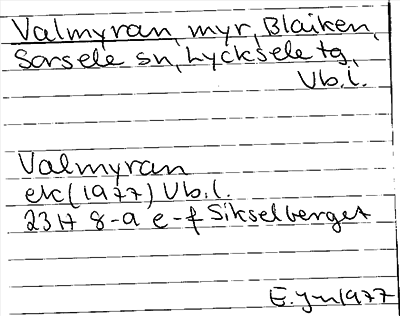 Valmyran, myr, Blaiken,
Sorsele sn, Lycksele tg,
Vb.l.
Valmyran
ek (1977) Vb.l.
23H 8-9 e-f Sikselberget
1977